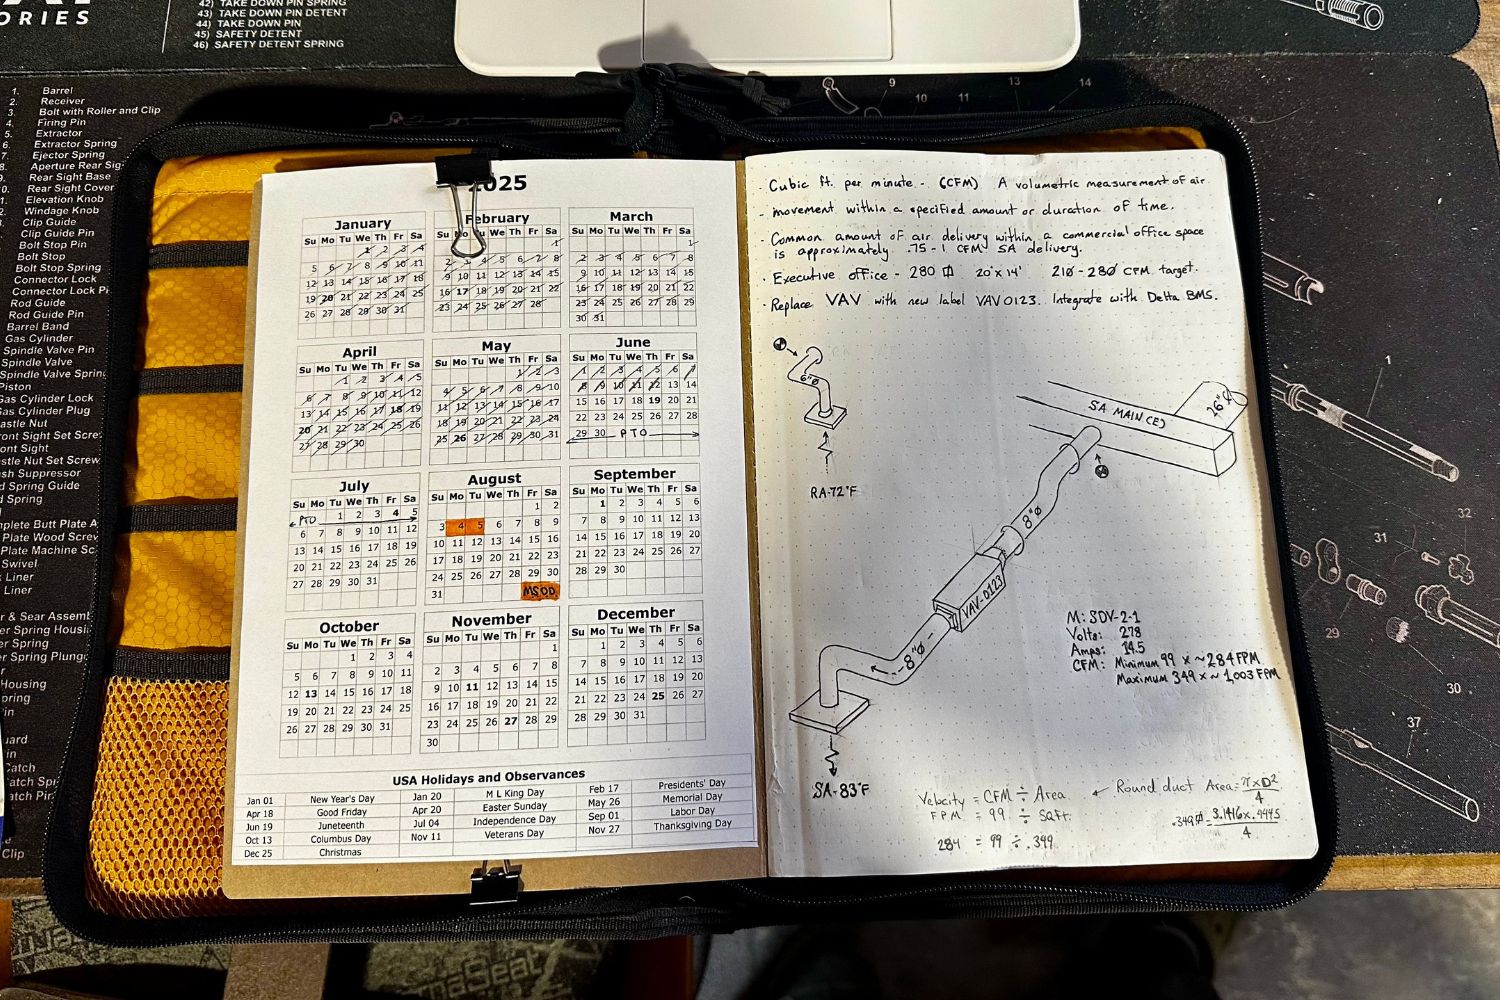 ORIES
42) TAKE DOWN PIN SPRING
43) TAKE DOWN PIN DETENT
44) TAKE DOWN PIN
45) SAFETY DETENT
46) SAFETY DETENT SPRING
1. Barrel
2. Receiver
3. Bolt with Roller and Clip
4. Firing Pin
5. Extractor
6. Extractor Spring
7. Ejector Spring
8. Aperture Rear Sig
9. Rear Sight Base
0. Rear Sight Cover
1. Elevation Knob
2. Windage Knob
Clip Guide
Clip Guide Pin
Bolt Stop Pin
Bolt Stop
Bolt Stop Spring
Connector Lock
Connector Lock Pi
Rod Guide
Rod Guide Pin
Barrel Band
Gas Cylinder
Spindle Valve Pin
Spindle Valve
Spindle Valve Spring
Piston
Gas Cylinder Lock
Gas Cylinder Plug
astle Nut
ront Sight Set Scre
ont Sight
stle Nut Set Screw
sh Suppressor
d Spring Guide
d Spring
in
mplete Butt Plate A
Plate Wood Screw
Plate Machine Sc
Swivel
Liner
Liner
r & Sear Assembl
er Spring Housi
er Spring
er Spring Plunge
Housing
pring
in
uard
in
atch
atch Spi
atch Pin
Clip
9
10
11
13
14
1
32
31
29
30
37
2025
January
Su Mo Tu We Th Fr Sa
1 2 3 4
5 6 7 8 9 10 11
12 13 14 15 16 17 18
19 20 21 22 23 24 25
26 27 28 29 30 31
February
Su Mo Tu We Th Fr Sa
1
2 3 4 5 6 7 8
9 10 11 12 13 14 15
16 17 18 19 20 21 22
23 24 25 26 27 28
March
Su Mo Tu We Th Fr Sa
1
2 3 4 5 6 7 8
9 10 11 12 13 14 15
16 17 18 19 20 21 22
23 24 25 26 27 28 29
30 31
April
Su Mo Tu We Th Fr Sa
1 2 3 4 5
6 7 8 9 10 11 12
13 14 15 16 17 18 19
20 21 22 23 24 25 26
27 28 29 30
May
Su Mo Tu We Th Fr Sa
1 2 3
4 5 6 7 8 9 10
11 12 13 14 15 16 17
18 19 20 21 22 23 24
25 26 27 28 29 30 31
June
Su Mo Tu We Th Fr Sa
1 2 3 4 5 6 7
8 9 10 11 12 13 14
15 16 17 18 19 20 21
22 23 24 25 26 27 28
29 30 PTO
July
Su Mo Tu We Th Fr Sa
PTO 1 2 3 4 5
6 7 8 9 10 11 12
13 14 15 16 17 18 19
20 21 22 23 24 25 26
27 28 29 30 31
August
Su Mo Tu We Th Fr Sa
1 2
3 4 5 6 7 8 9
10 11 12 13 14 15 16
17 18 19 20 21 22 23
24 25 26 27 28 29 30
31 MSDD
September
Su Mo Tu We Th Fr Sa
1 2 3 4 5 6
7 8 9 10 11 12 13
14 15 16 17 18 19 20
21 22 23 24 25 26 27
28 29 30
October
Su Mo Tu We Th Fr Sa
1 2 3 4
5 6 7 8 9 10 11
12 13 14 15 16 17 18
19 20 21 22 23 24 25
26 27 28 29 30 31
November
Su Mo Tu We Th Fr Sa
1
2 3 4 5 6 7 8
9 10 11 12 13 14 15
16 17 18 19 20 21 22
23 24 25 26 27 28 29
30
December
Su Mo Tu We Th Fr Sa
1 2 3 4 5 6
7 8 9 10 11 12 13
14 15 16 17 18 19 20
21 22 23 24 25 26 27
28 29 30 31
USA Holidays and Observances
Jan 01 New Year's Day Jan 20 M L King Day Feb 17 Presidents' Day
Apr 18 Good Friday Apr 20 Easter Sunday May 26 Memorial Day
Jun 19 Juneteenth Jul 04 Independence Day Sep 01 Labor Day
Oct 13 Columbus Day Nov 11 Veterans Day Nov 27 Thanksgiving Day
Dec 25 Christmas
· Cubic ft. per minute - (CFM) A volumetric measurement of air
- movement within a specified amount or duration of time.
· Common amount of air delivery within a commercial office space
is approximately .75-1 CFM SA delivery.
· Executive office - 280 20'x14' 210-280 CFM target.
· Replace VAV with new label VAV0123. Integrate with Delta BMS.
6"ø
RA-72°F
SA MAIN (E)
26"ø
8"ø
VAV-0123
8"ø
SA-83°F
M: SDV-2-1
Volts: 278
Amps: 14.5
CFM: Minimum 99 x ~284 FPM
Maximum 349 x ~1,003 FPM
Velocity = CFM ÷ Area ← Round duct Area = π×D²/4
FPM = 99 ÷ Sqft.
.349 = 3.1416×.4445/4
284 = 99 ÷ .349